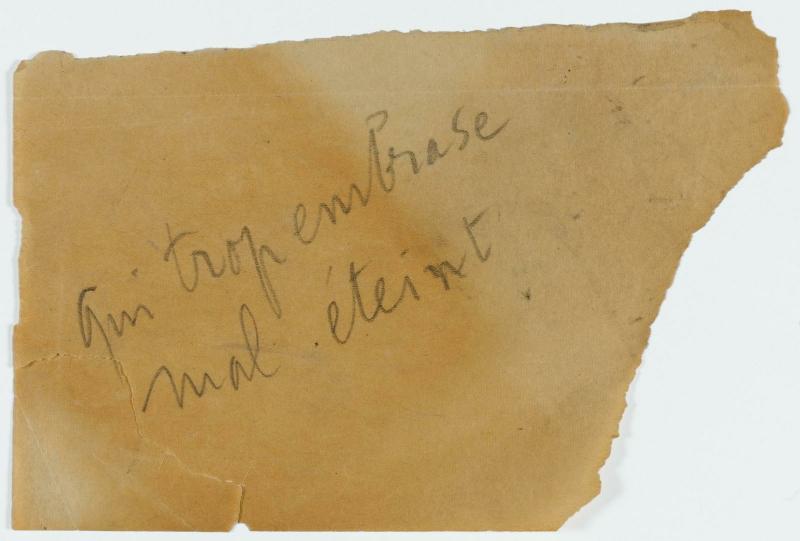 Qui trop embrase
mal éteint